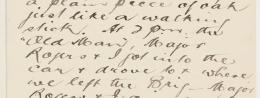 a plain piece of oak
just like a walking
stick. At 2 p.m. the
"Old Man, Major
Rogers & I got into the
car & drove to where
we left the Brig — Major
Rogers & I